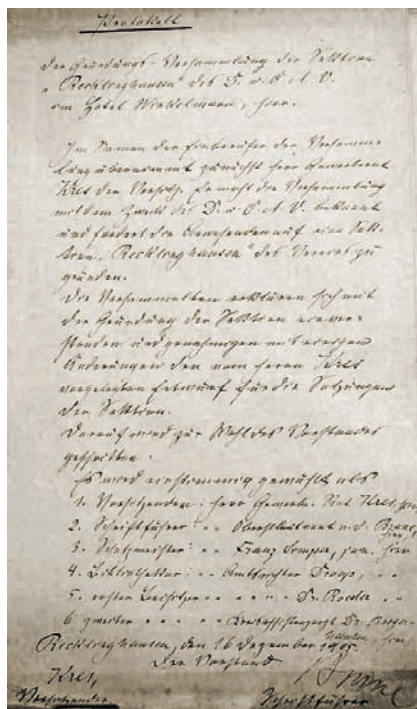 Protokoll
der Gründungs-Versammlung der Sektion
"Recklinghausen" des D. u. Ö. A. V.
im Hotel Winkelmann, hier.
Im Namen der Einberufer der Versamm-
lung übernimmt zunächst Herr Gewerberat
Kres den Vorsitz. Er macht die Versammlung
mit dem Zweck des D. u. Ö. A. V. bekannt
und fordert die Anwesenden auf eine Sek-
tion "Recklinghausen" des Vereins zu
gründen.
Die Versammelten erklären sich mit
der Gründung der Sektion einver-
standen und genehmigen mit einigen
Änderungen den vom Herrn Kres
vorgelegten Entwurf für die Satzungen
der Sektion.
Darauf wird zur Wahl des Vorstandes
geschritten.
Es wird einstimmig gewählt als
1. Vorsitzenden: Herr Gewerbe-Rat Kres, hier
2. Schriftführer: " Oberstleutnant a. D. hier
3. Schatzmeister: " Franz jun. hier
4. Bibliothekar: " Amtsrichter
5. erster Beisitzer " " Dr.
6 zweiter " " Dr.
Recklinghausen, den 16 Dezember 1905.
Der Vorstand
Kres,
Vorsitzender
Schriftführer